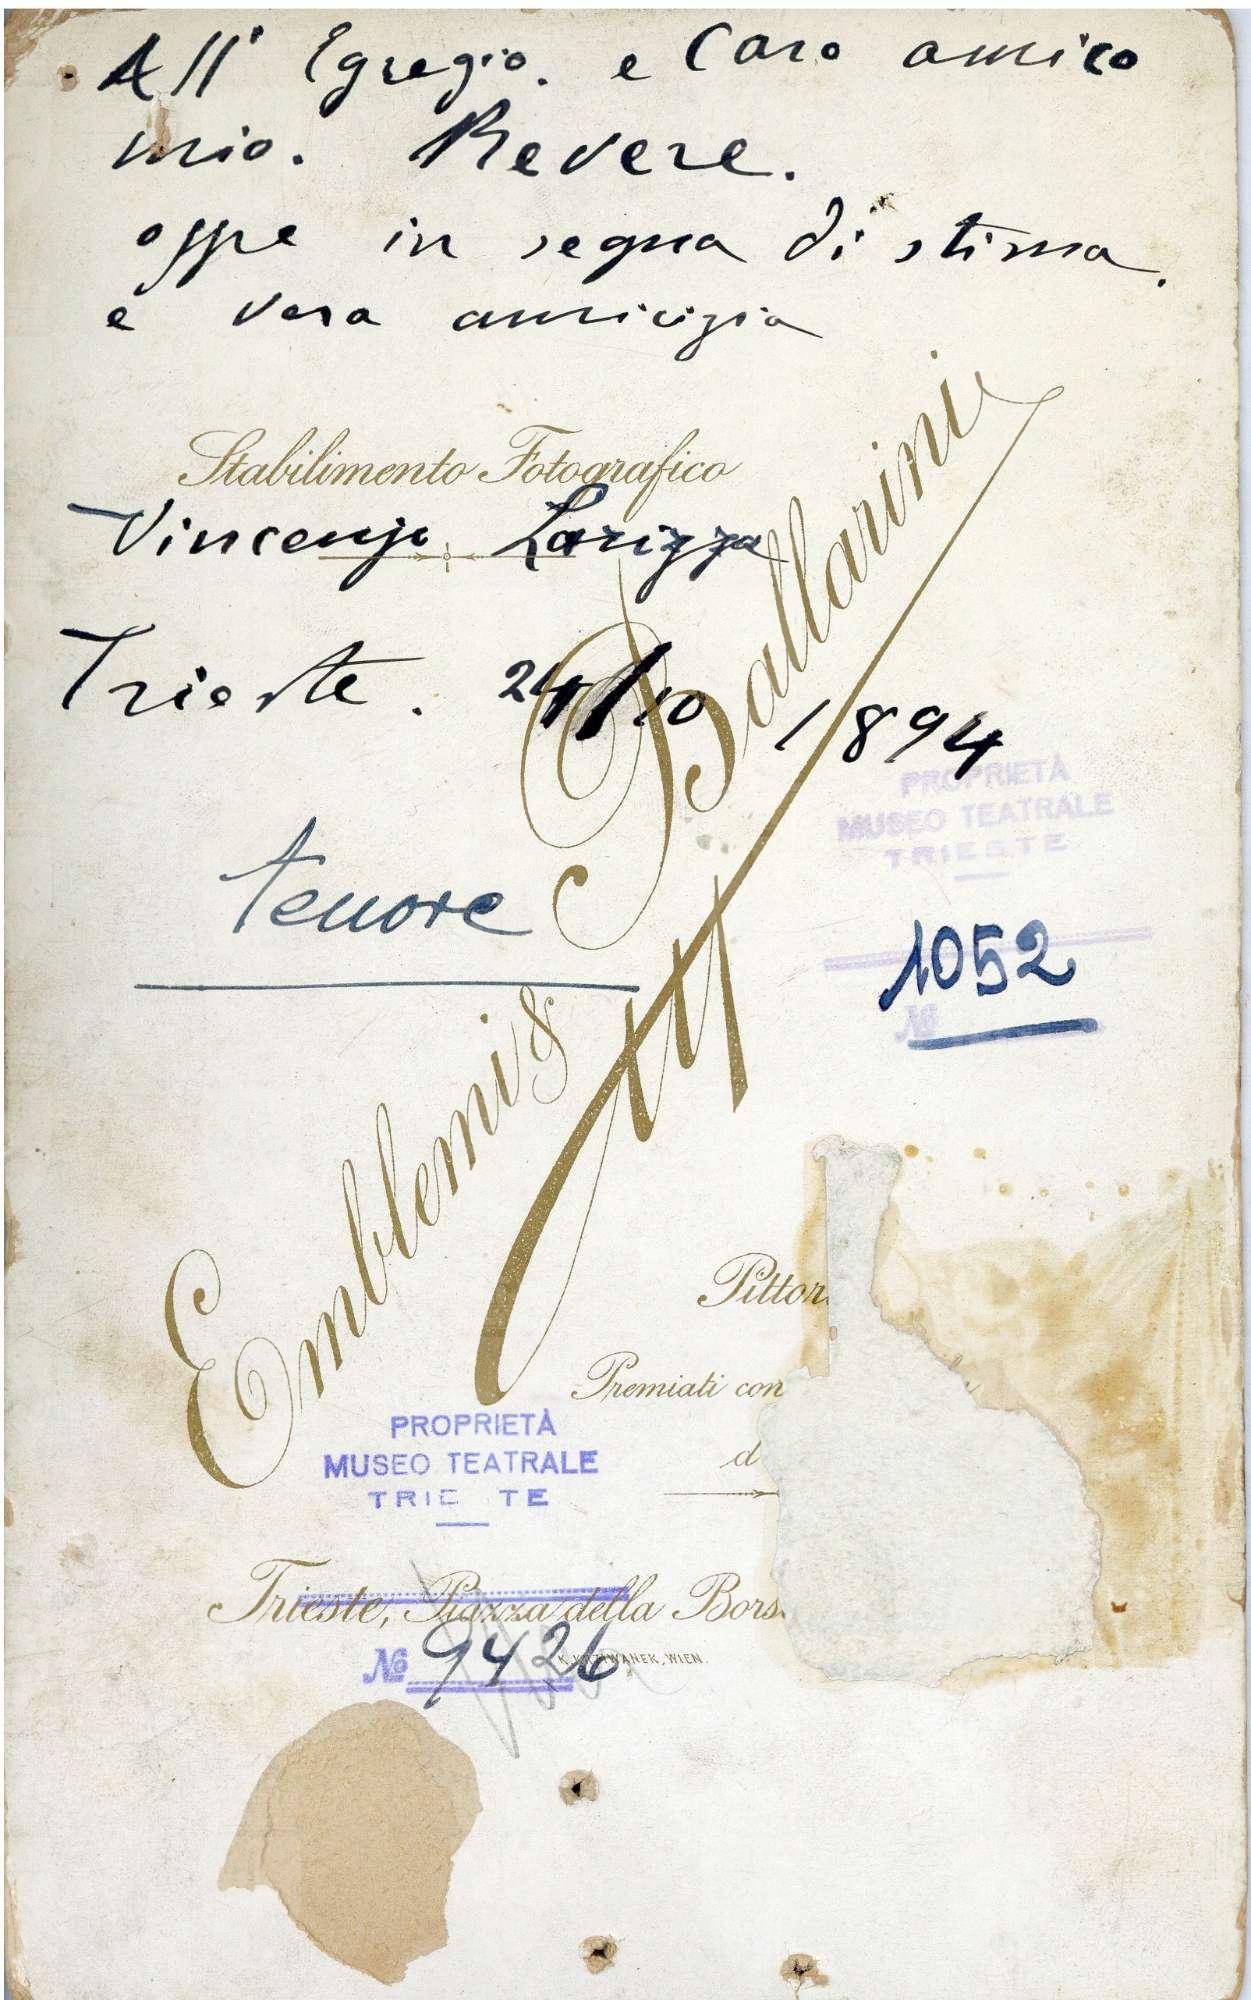 All' Egregio. e Caro amico
mio. Revere.
offre in segna di stima.
e vera amicizia
Stabilimento Fotografico
Vincenzo Larizza
Trieste. 24/10/1894
PROPRIETÀ
MUSEO TEATRALE
TRIESTE
tenore
1052
№
Emblemi & Ballarini
Pittor
Premiati con
d
PROPRIETÀ
MUSEO TEATRALE
TRIE TE
Trieste, Piazza della Bors
№ 9426
K. KRZIWANEK, WIEN.